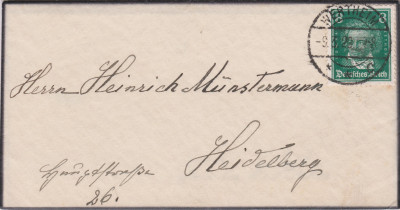 WERTHEIM
8
Deutsches Reich
Herrn Heinrich Münstermann
Heidelberg
Hauptstraße
26.